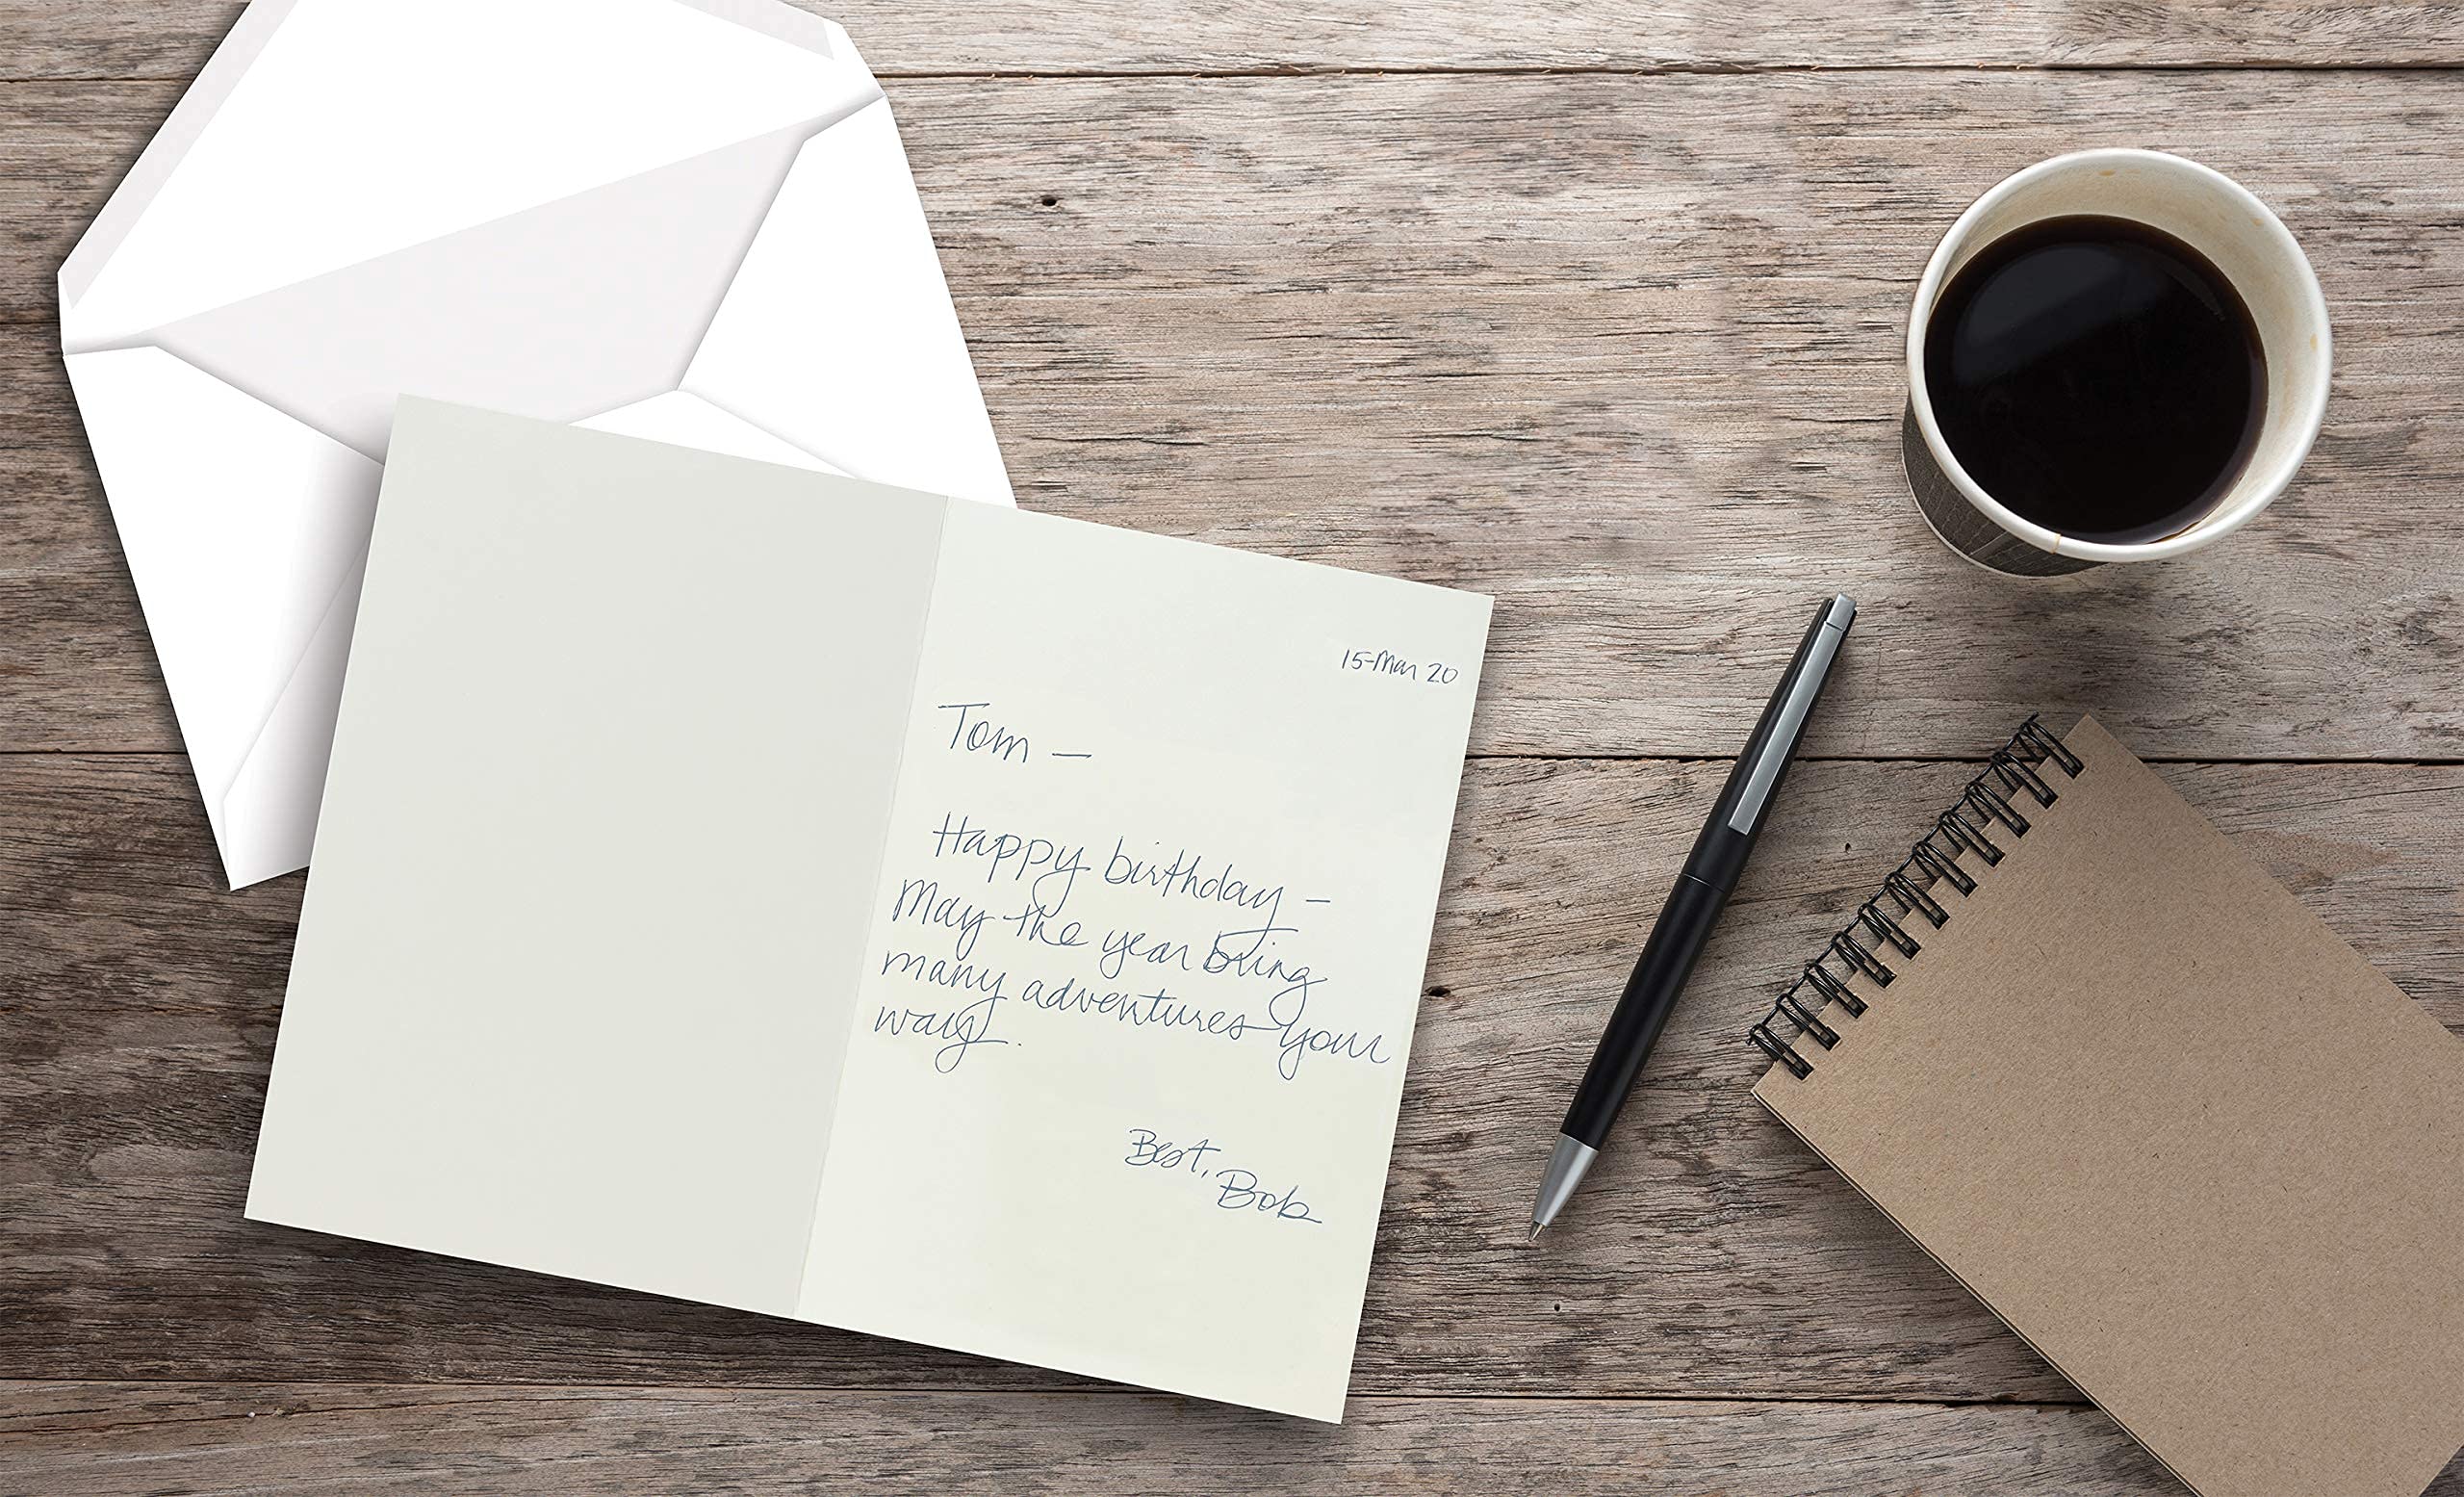 15-Mar 20
Tom —
Happy birthday —
May the year bring
many adventures your
way.
Best,
Bob